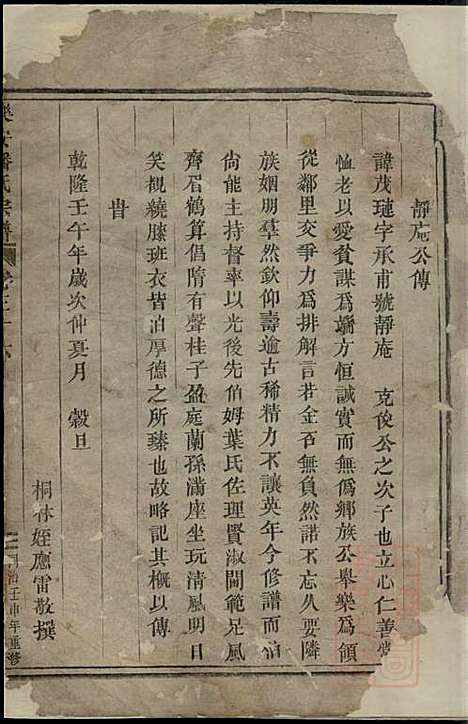 靜庵公傳
諱茂璉字承甫號靜庵　克俊公之次子也立心仁善
恤老以愛貧謀為端方恒誠實而無偽鄉族公舉樂為領
從鄰里交爭力為排解言若金石無負然諾不忘久要隣
族姻朋羣然欽仰壽逾古稀精力不讓英年今修譜而伯
尚能主持督率以光後先伯姆葉氏佐理賢淑閫範足風
齊眉鶴算倡隋有聲桂子盈庭蘭孫滿座坐玩清風明日
笑觀繞膝班衣皆泊厚德之所臻也故略記其概以傳
旹
乾隆壬午年歲次仲夏月　穀旦
桐林姪應雷敬撰
潘氏宗譜
同治壬申年重修